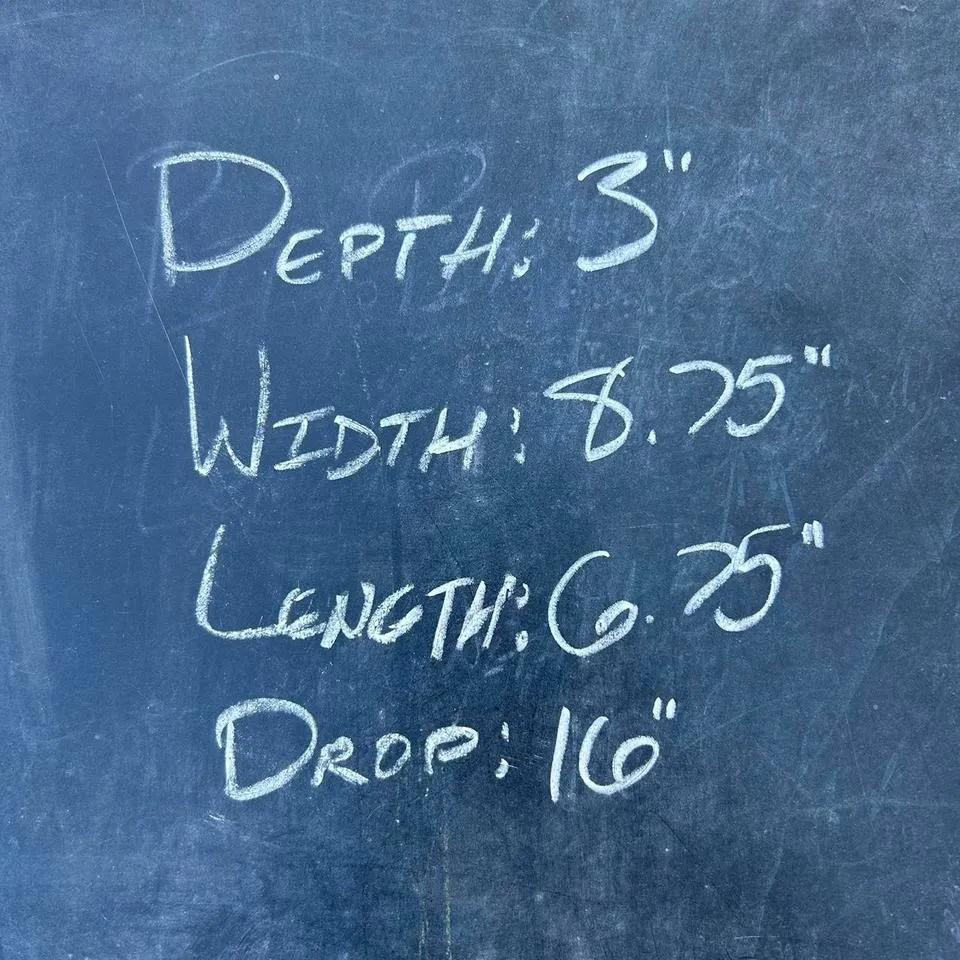 DEPTH: 3"
WIDTH: 8.75"
LENGTH: 6.75"
DROP: 16"